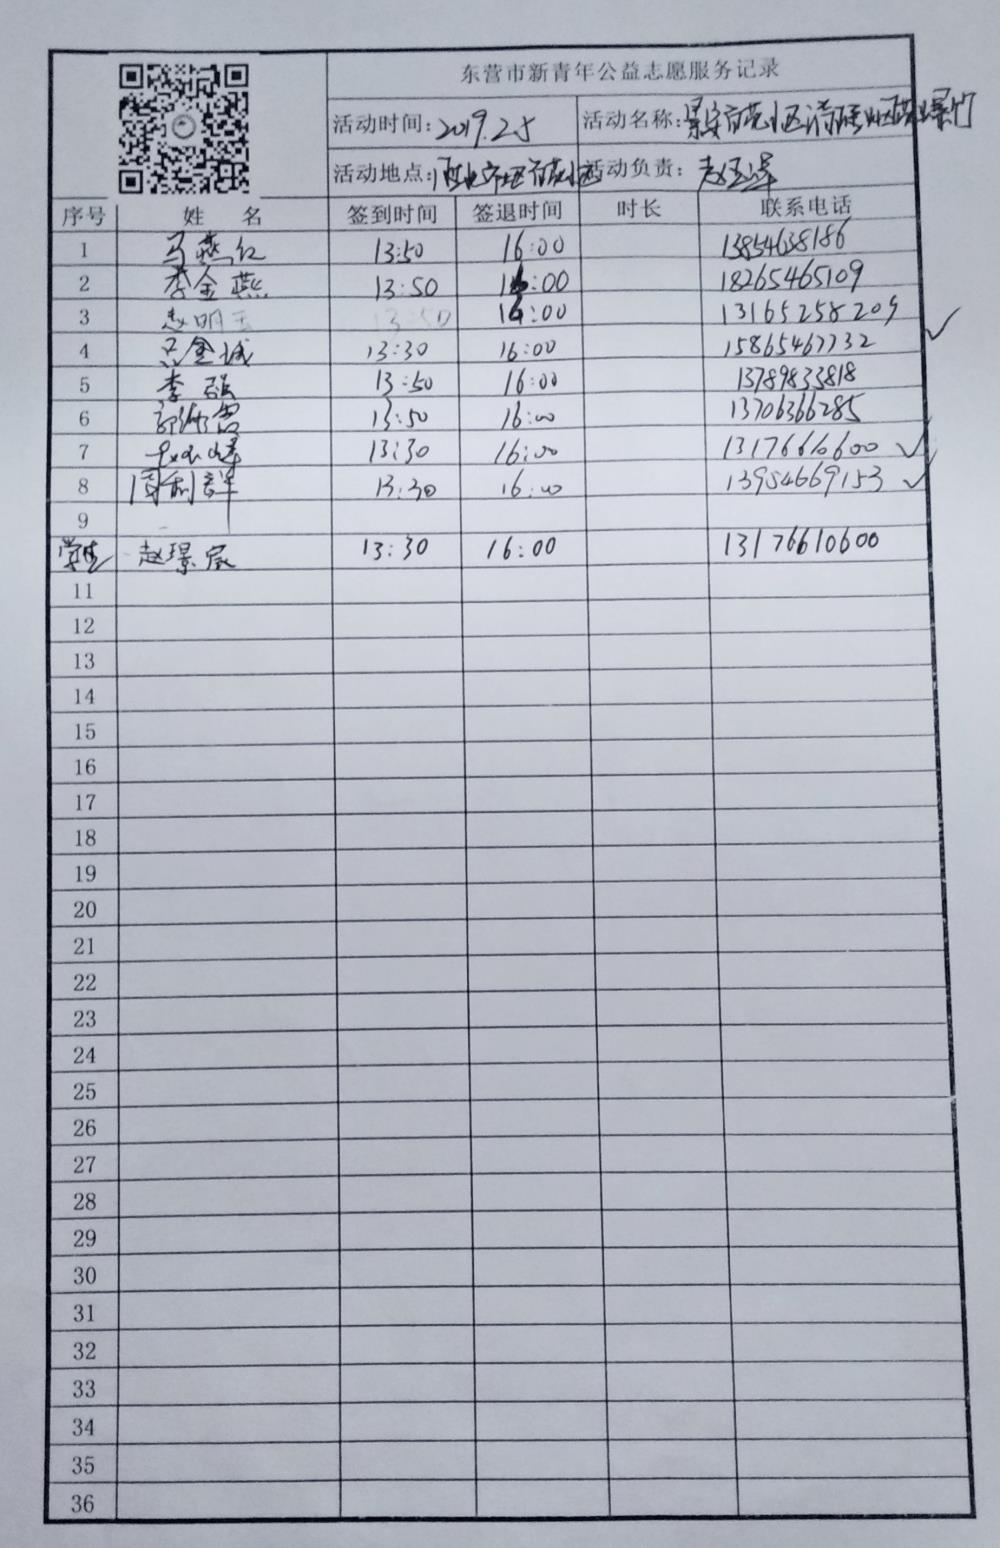 东营市新青年公益志愿服务记录
活动时间: 2019.2.5 活动名称:
活动地点: 活动负责:
序号 姓 名 签到时间 签退时间 时长 联系电话
1 马燕红 13:50 16:00 13854638186
2 李金燕 13:50 16:00 18265465109
3 赵明玉 13:50 16:00 13165258209
4 吕金城 13:30 16:00 15865467732
5 李强 13:50 16:00 13789833818
6 13:50 16:00 13706366285
7 13:30 16:00 13176610600
8 周利群 13:30 16:00 13954669153
9
学生 赵璟宸 13:30 16:00 13176610600
11
12
13
14
15
16
17
18
19
20
21
22
23
24
25
26
27
28
29
30
31
32
33
34
35
36